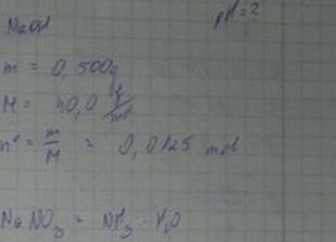 NaOH pH = 2
m = 0,500g
M = 40,0 g/mol
n = m/M = 0,0125 mol
NaNO3 - NH3 · H2O